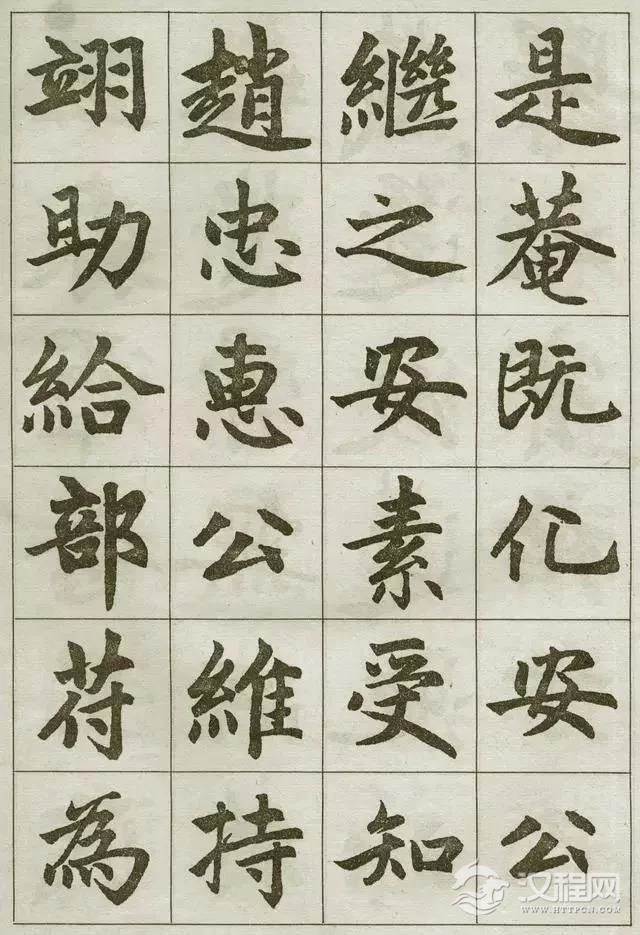 是菴既化安公
繼之安素受知
趙忠惠公維持
翊助給部符為
汉程网
WWW.HTTPCN.COM